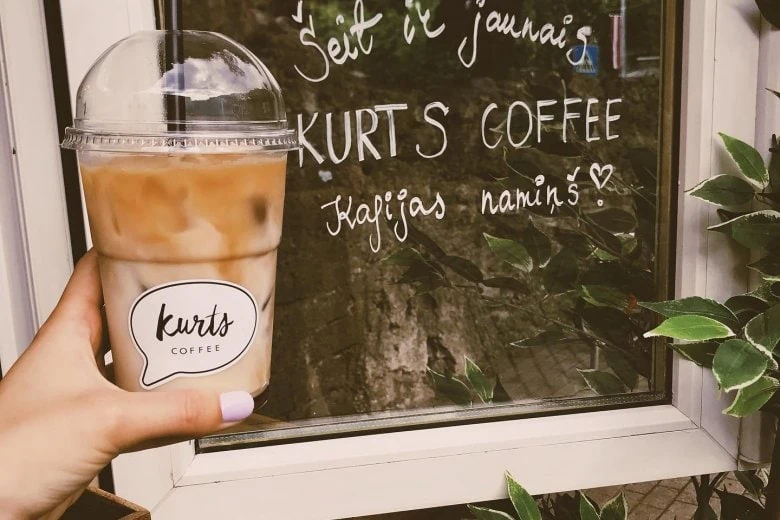 Šeit ir jaunais
KURTS COFFEE
Kafijas namiņš
kurts
COFFEE